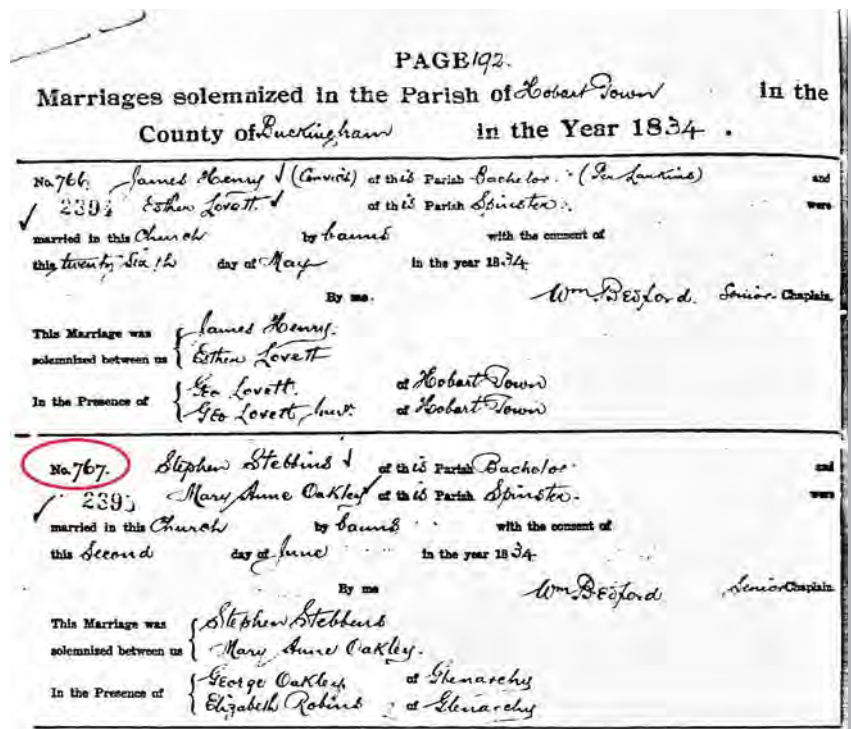 PAGE 192.
Marriages solemnized in the Parish of Hobart Town in the
County of Buckingham in the Year 1834.
No. 766. James Henry (Convict) of this Parish Bachelor. (Per Larkins) and
2394 Esther Lovett of this Parish Spinster. were
married in this Church by banns with the consent of
this twenty Sixth day of May in the year 1834
By me. Wm Bedford. Senior Chaplain
This Marriage was James Henry.
solemnized between us Esther Lovett
In the Presence of Geo Lovett. of Hobart Town
Geo Lovett, Junr. of Hobart Town
No. 767. Stephen Stebbins of this Parish Bachelor and
2395 Mary Anne Oakley of this Parish Spinster. were
married in this Church by banns with the consent of
this Second day of June in the year 1834
By me Wm Bedford Senior Chaplain
This Marriage was Stephen Stebbens
solemnized between us Mary Anne Oakley.
In the Presence of George Oakley of Glenarchy
Elizabeth Robins of Glenarchy